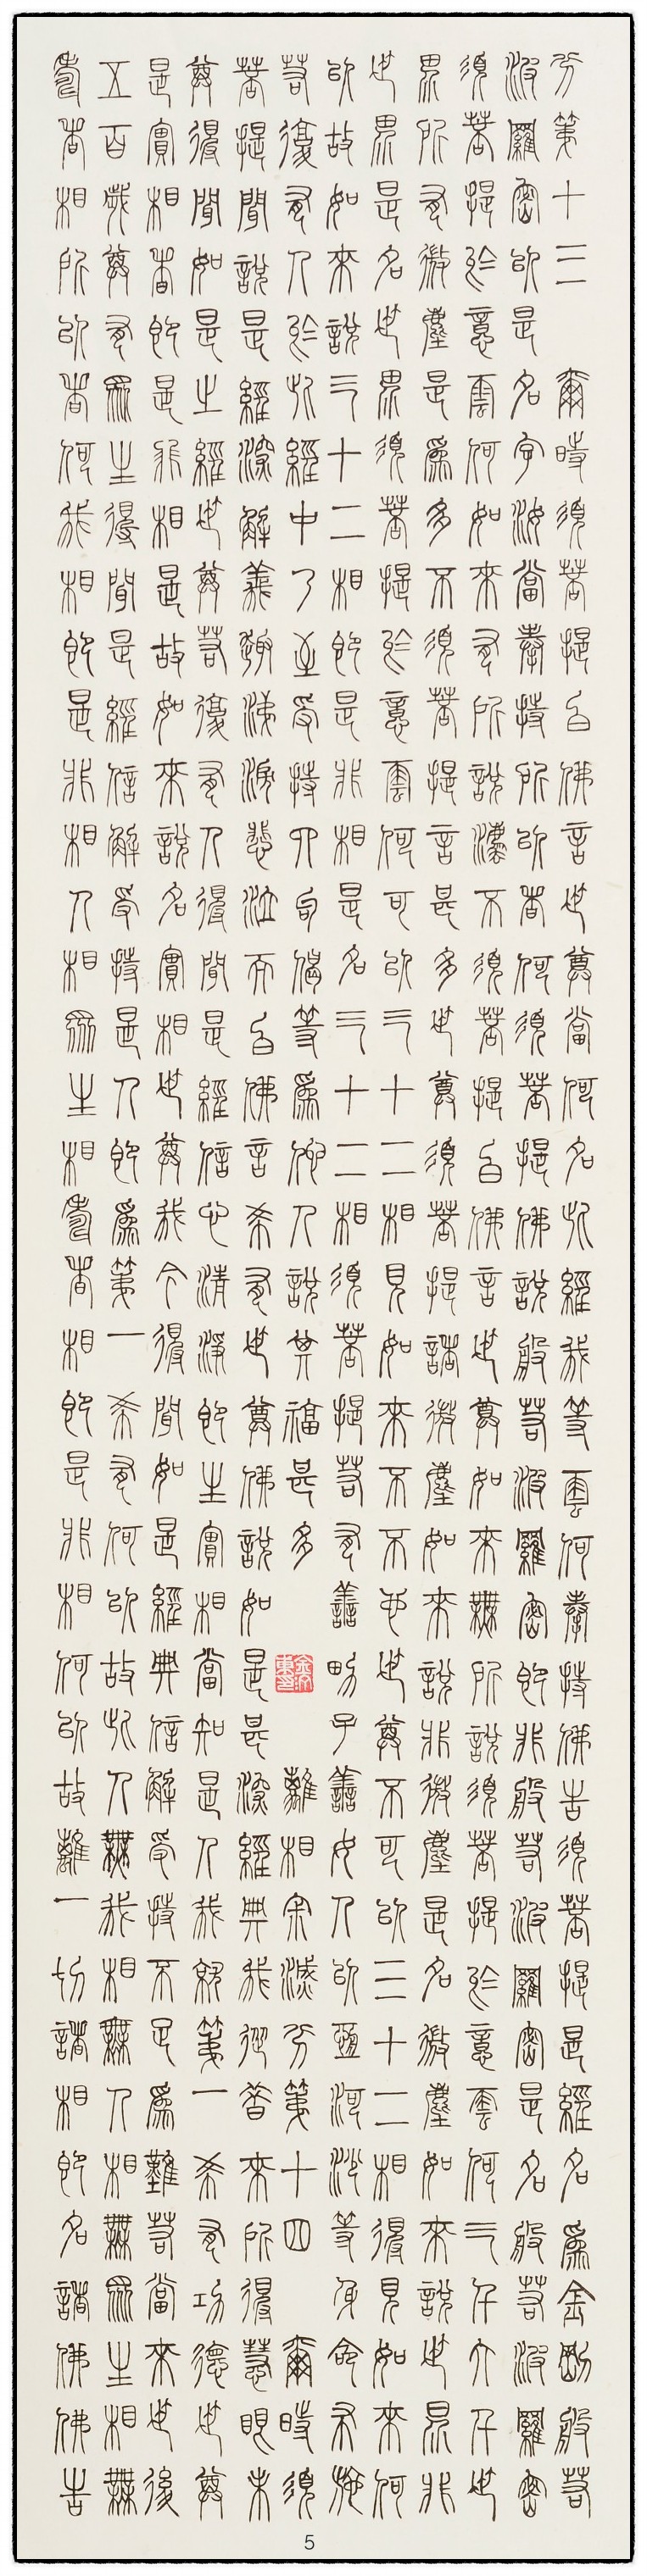 分第十三 爾時須菩提白佛言世尊當何名此經我等雲何奉持佛告須菩提是經名為金剛般若
波羅密以是名字汝當奉持所以者何須菩提佛說般若波羅密即非般若波羅密是名般若波羅密
須菩提於意雲何如來有所說法不須菩提白佛言世尊如來無所說須菩提於意雲何三千大千世
界所有微塵是為多不須菩提言甚多世尊須菩提諸微塵如來說非微塵是名微塵如來說世界非
世界是名世界須菩提於意雲何可以三十二相見如來不不也世尊不可以三十二相得見如來何
以故如來說三十二相即是非相是名三十二相須菩提若有善男子善女人以恆河沙等身命布施
若復有人於此經中乃至受持四句偈等為他人說其福甚多 離相寂滅分第十四 爾時須
菩提聞說是經深解義趣涕淚悲泣而白佛言希有世尊佛說如是甚深經典我從昔來所得慧眼未
曾得聞如是之經世尊若復有人得聞是經信心清淨即生實相當知是人成就第一希有功德世尊
是實相者即是非相是故如來說名實相世尊我今得聞如是經典信解受持不足為難若當來世後
五百歲其有眾生得聞是經信解受持是人即為第一希有何以故此人無我相無人相無眾生相無
壽者相所以者何我相即是非相人相眾生相壽者相即是非相何以故離一切諸相即名諸佛佛告
5